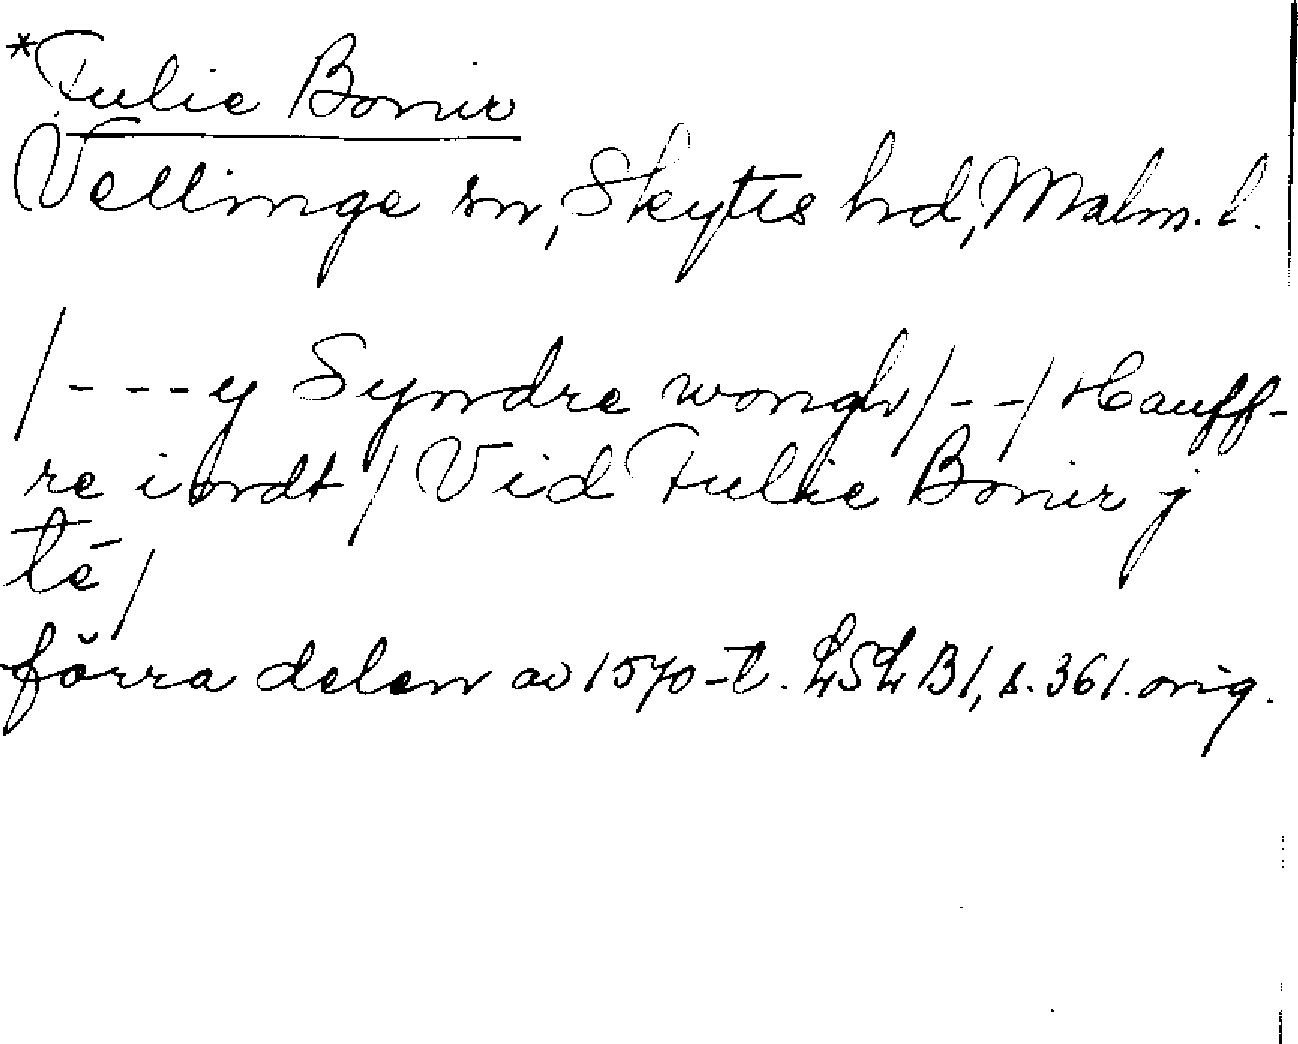 *Fulie Bonir
Vellinge sn, Skytts hd, Malm. l.
/---y Syndre wongh/--/ Hauff-
re iordt / Vid Fulie Bonir j
té/
förra delen av 1570-t. LSL B1, s. 361. orig.